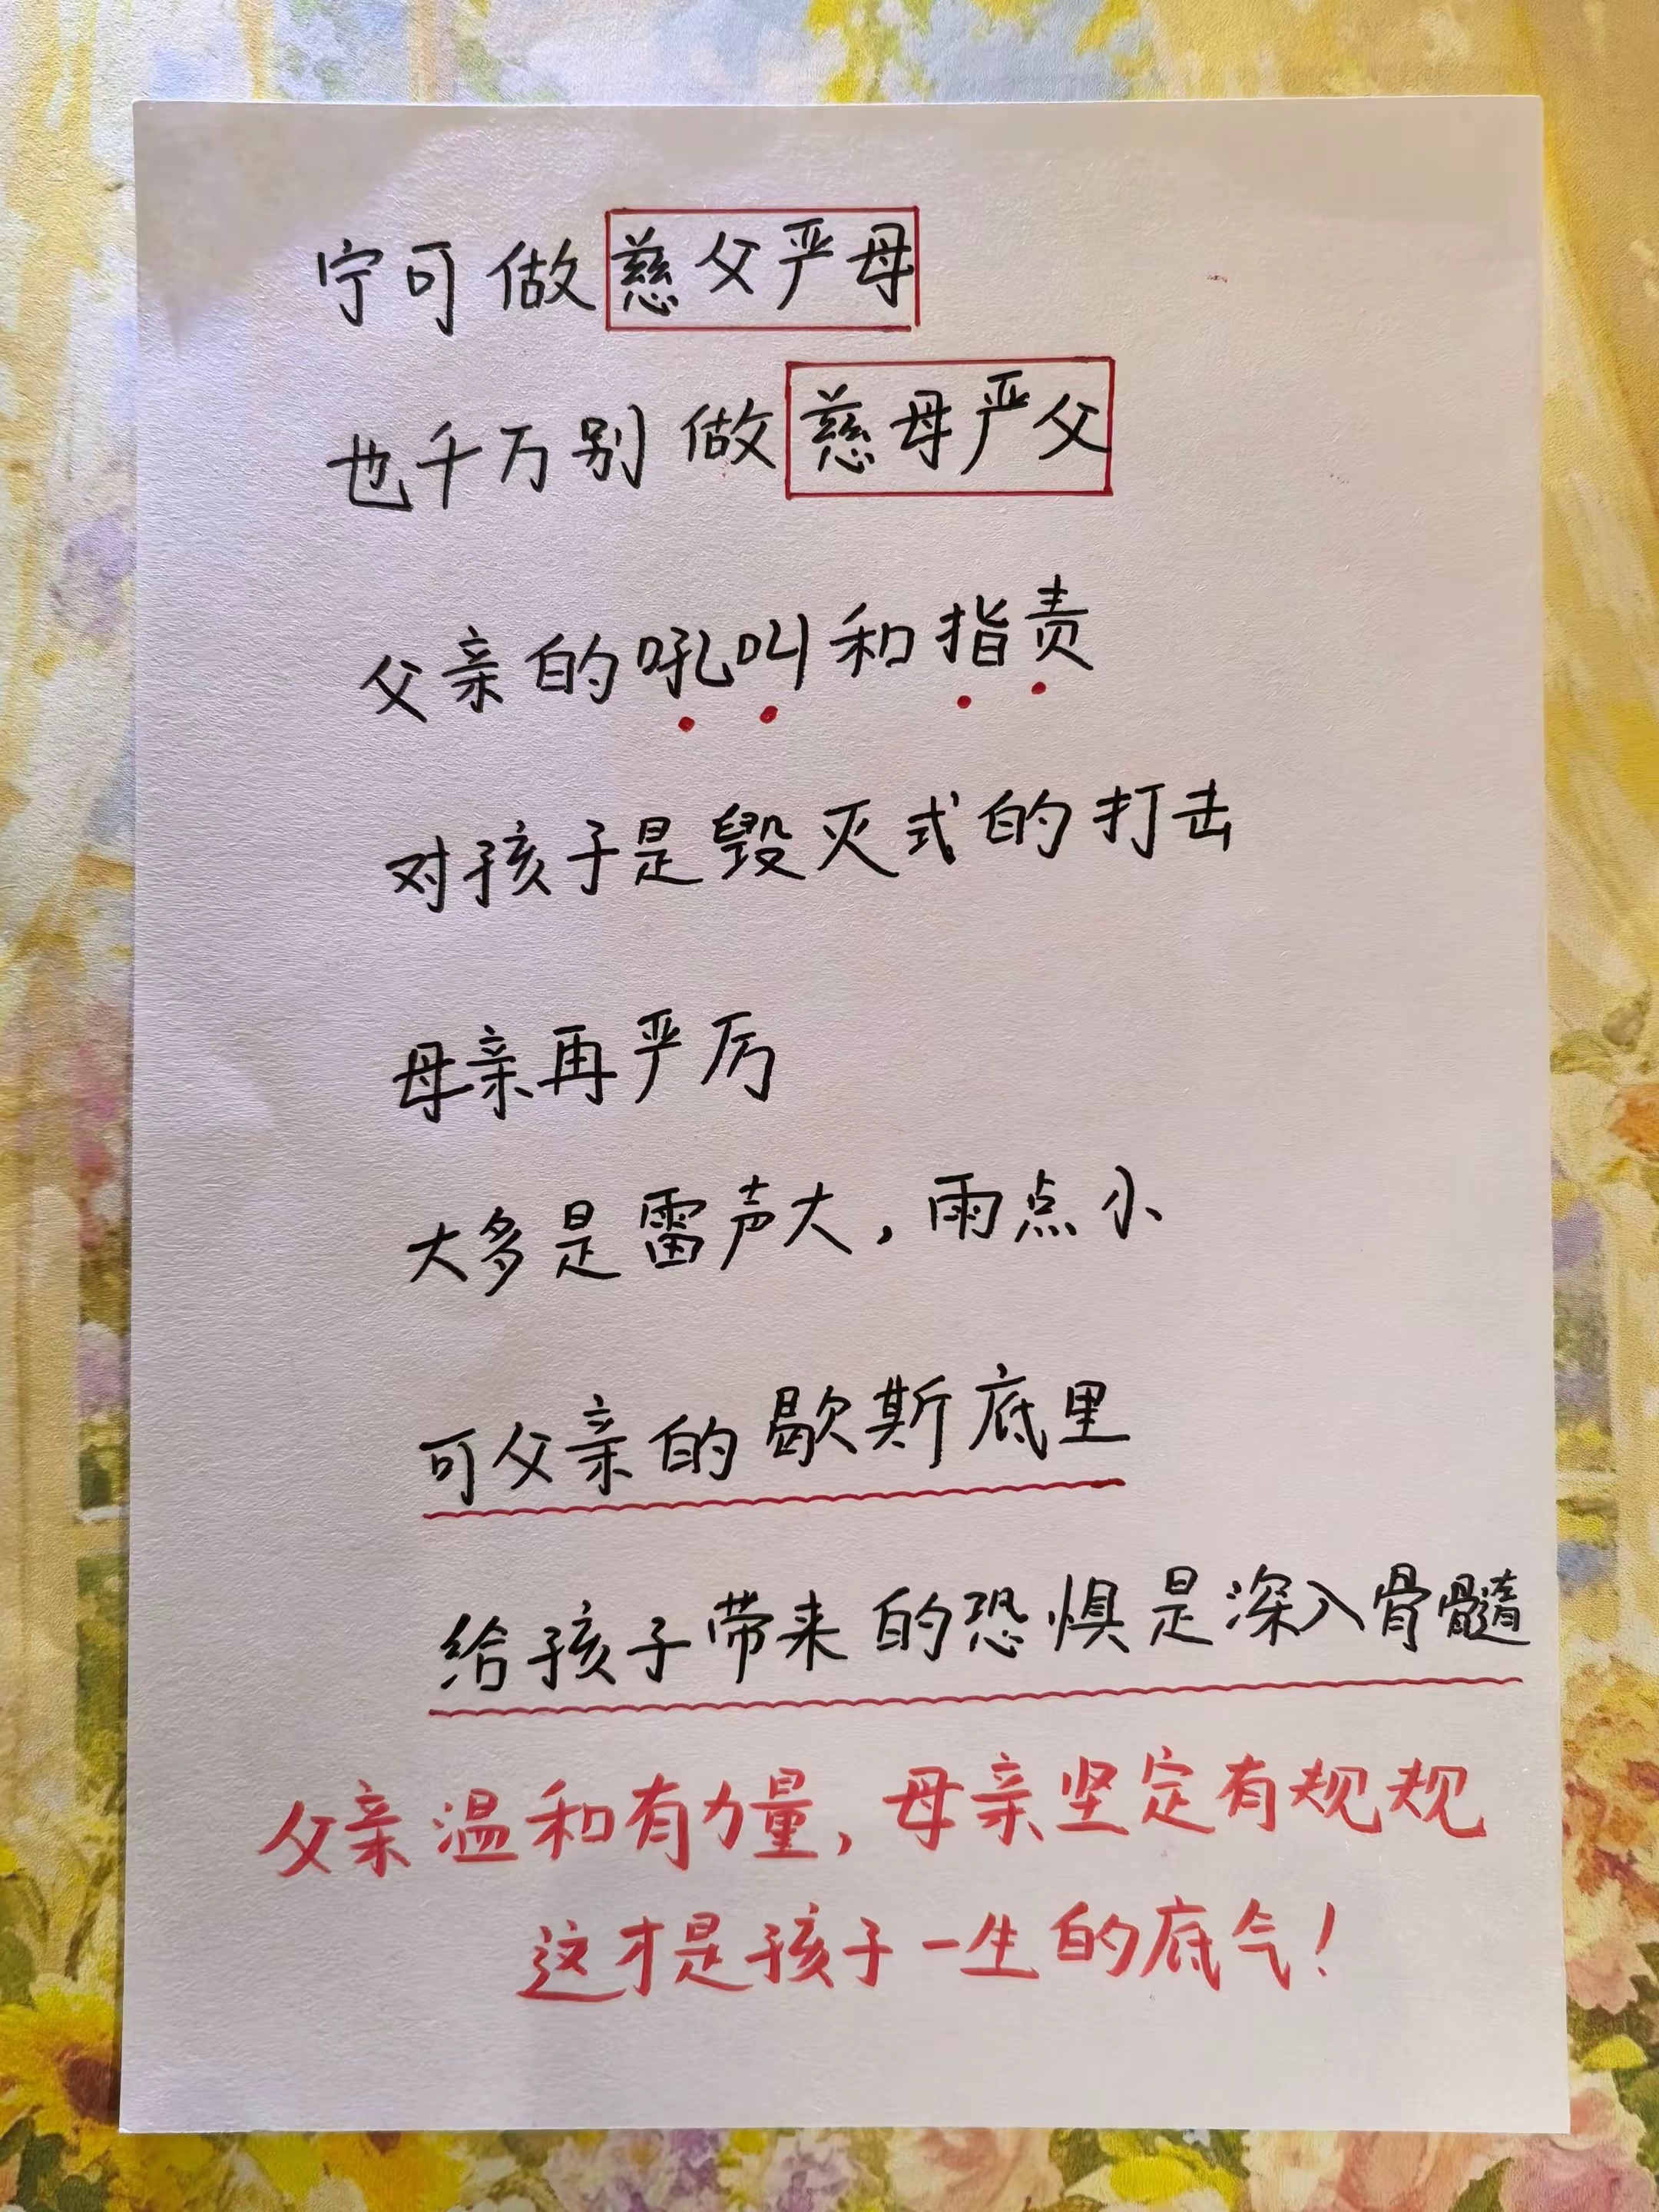 宁可做慈父严母
也千万别做慈母严父
父亲的吼叫和指责
对孩子是毁灭式的打击
母亲再严厉
大多是雷声大，雨点小
可父亲的歇斯底里
给孩子带来的恐惧是深入骨髓
父亲温和有力量，母亲坚定有规规
这才是孩子一生的底气！